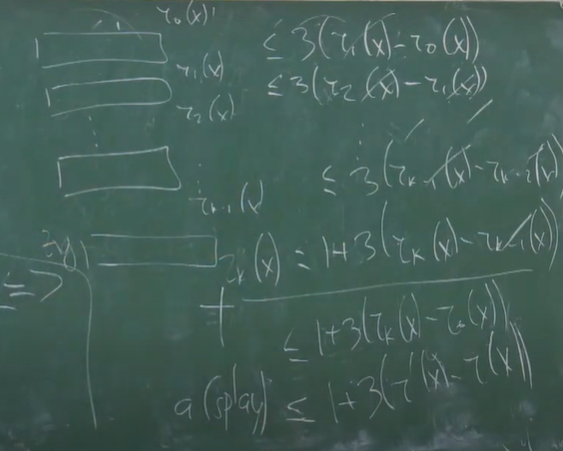 r₀(x)
≤ 3(r₁(x) - r₀(x))
r₁(x)
≤ 3(r₂(x) - r₁(x))
r₂(x)
⋮ ⋮
≤ 3(rₖ₋₁(x) - rₖ₋₂(x))
⋮
rₖ₋₁(x)
zig
rₖ(x) = 1+3(rₖ(x) - rₖ₋₁(x))
=>
+
≤ 1+3(rₖ(x) - r₀(x))
a(splay) ≤ 1+3(r'(x) - r(x))